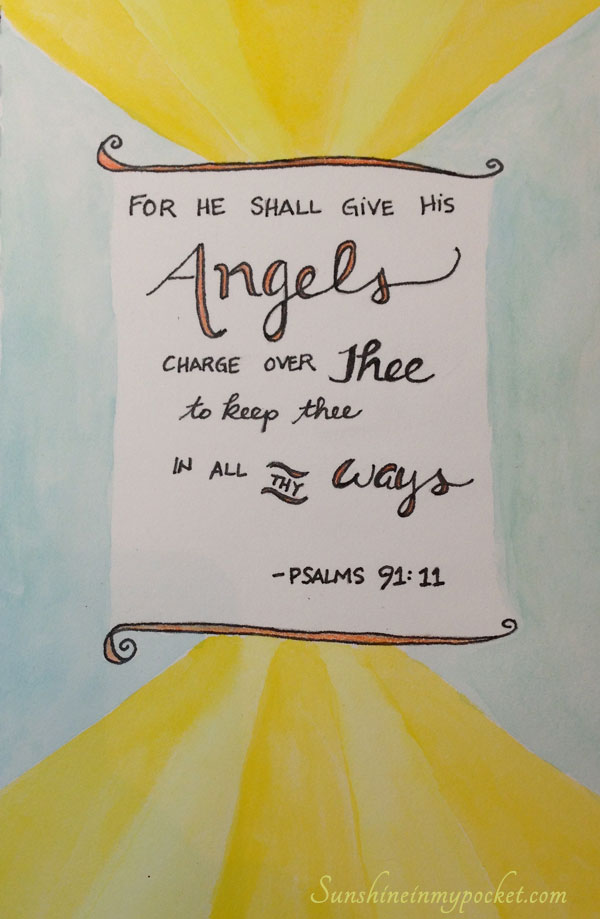 FOR HE SHALL GIVE HIS
Angels
CHARGE OVER Thee
to keep thee
IN ALL THY Ways
-PSALMS 91:11
Sunshineinmypocket.com